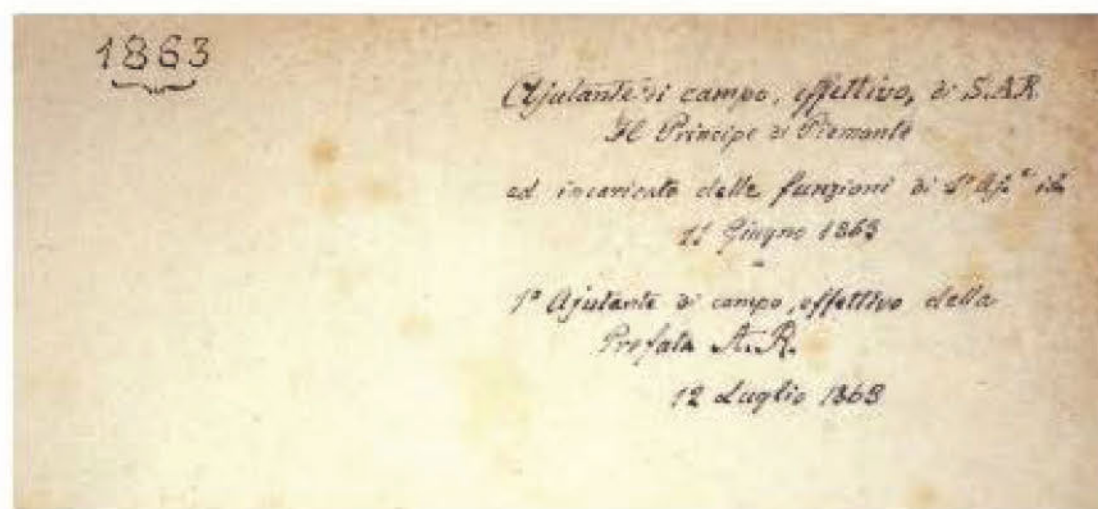 1863
Ajutante di campo, effettivo, di S.A.R.
Il Principe di Piemonte
ed incaricato delle funzioni di 1º Ajte id.
11 Giugno 1863
1º Ajutante di campo, effettivo della
Prefata A.R.
12 Luglio 1863